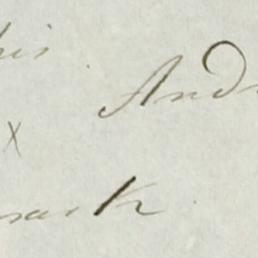 his
And
x
mark